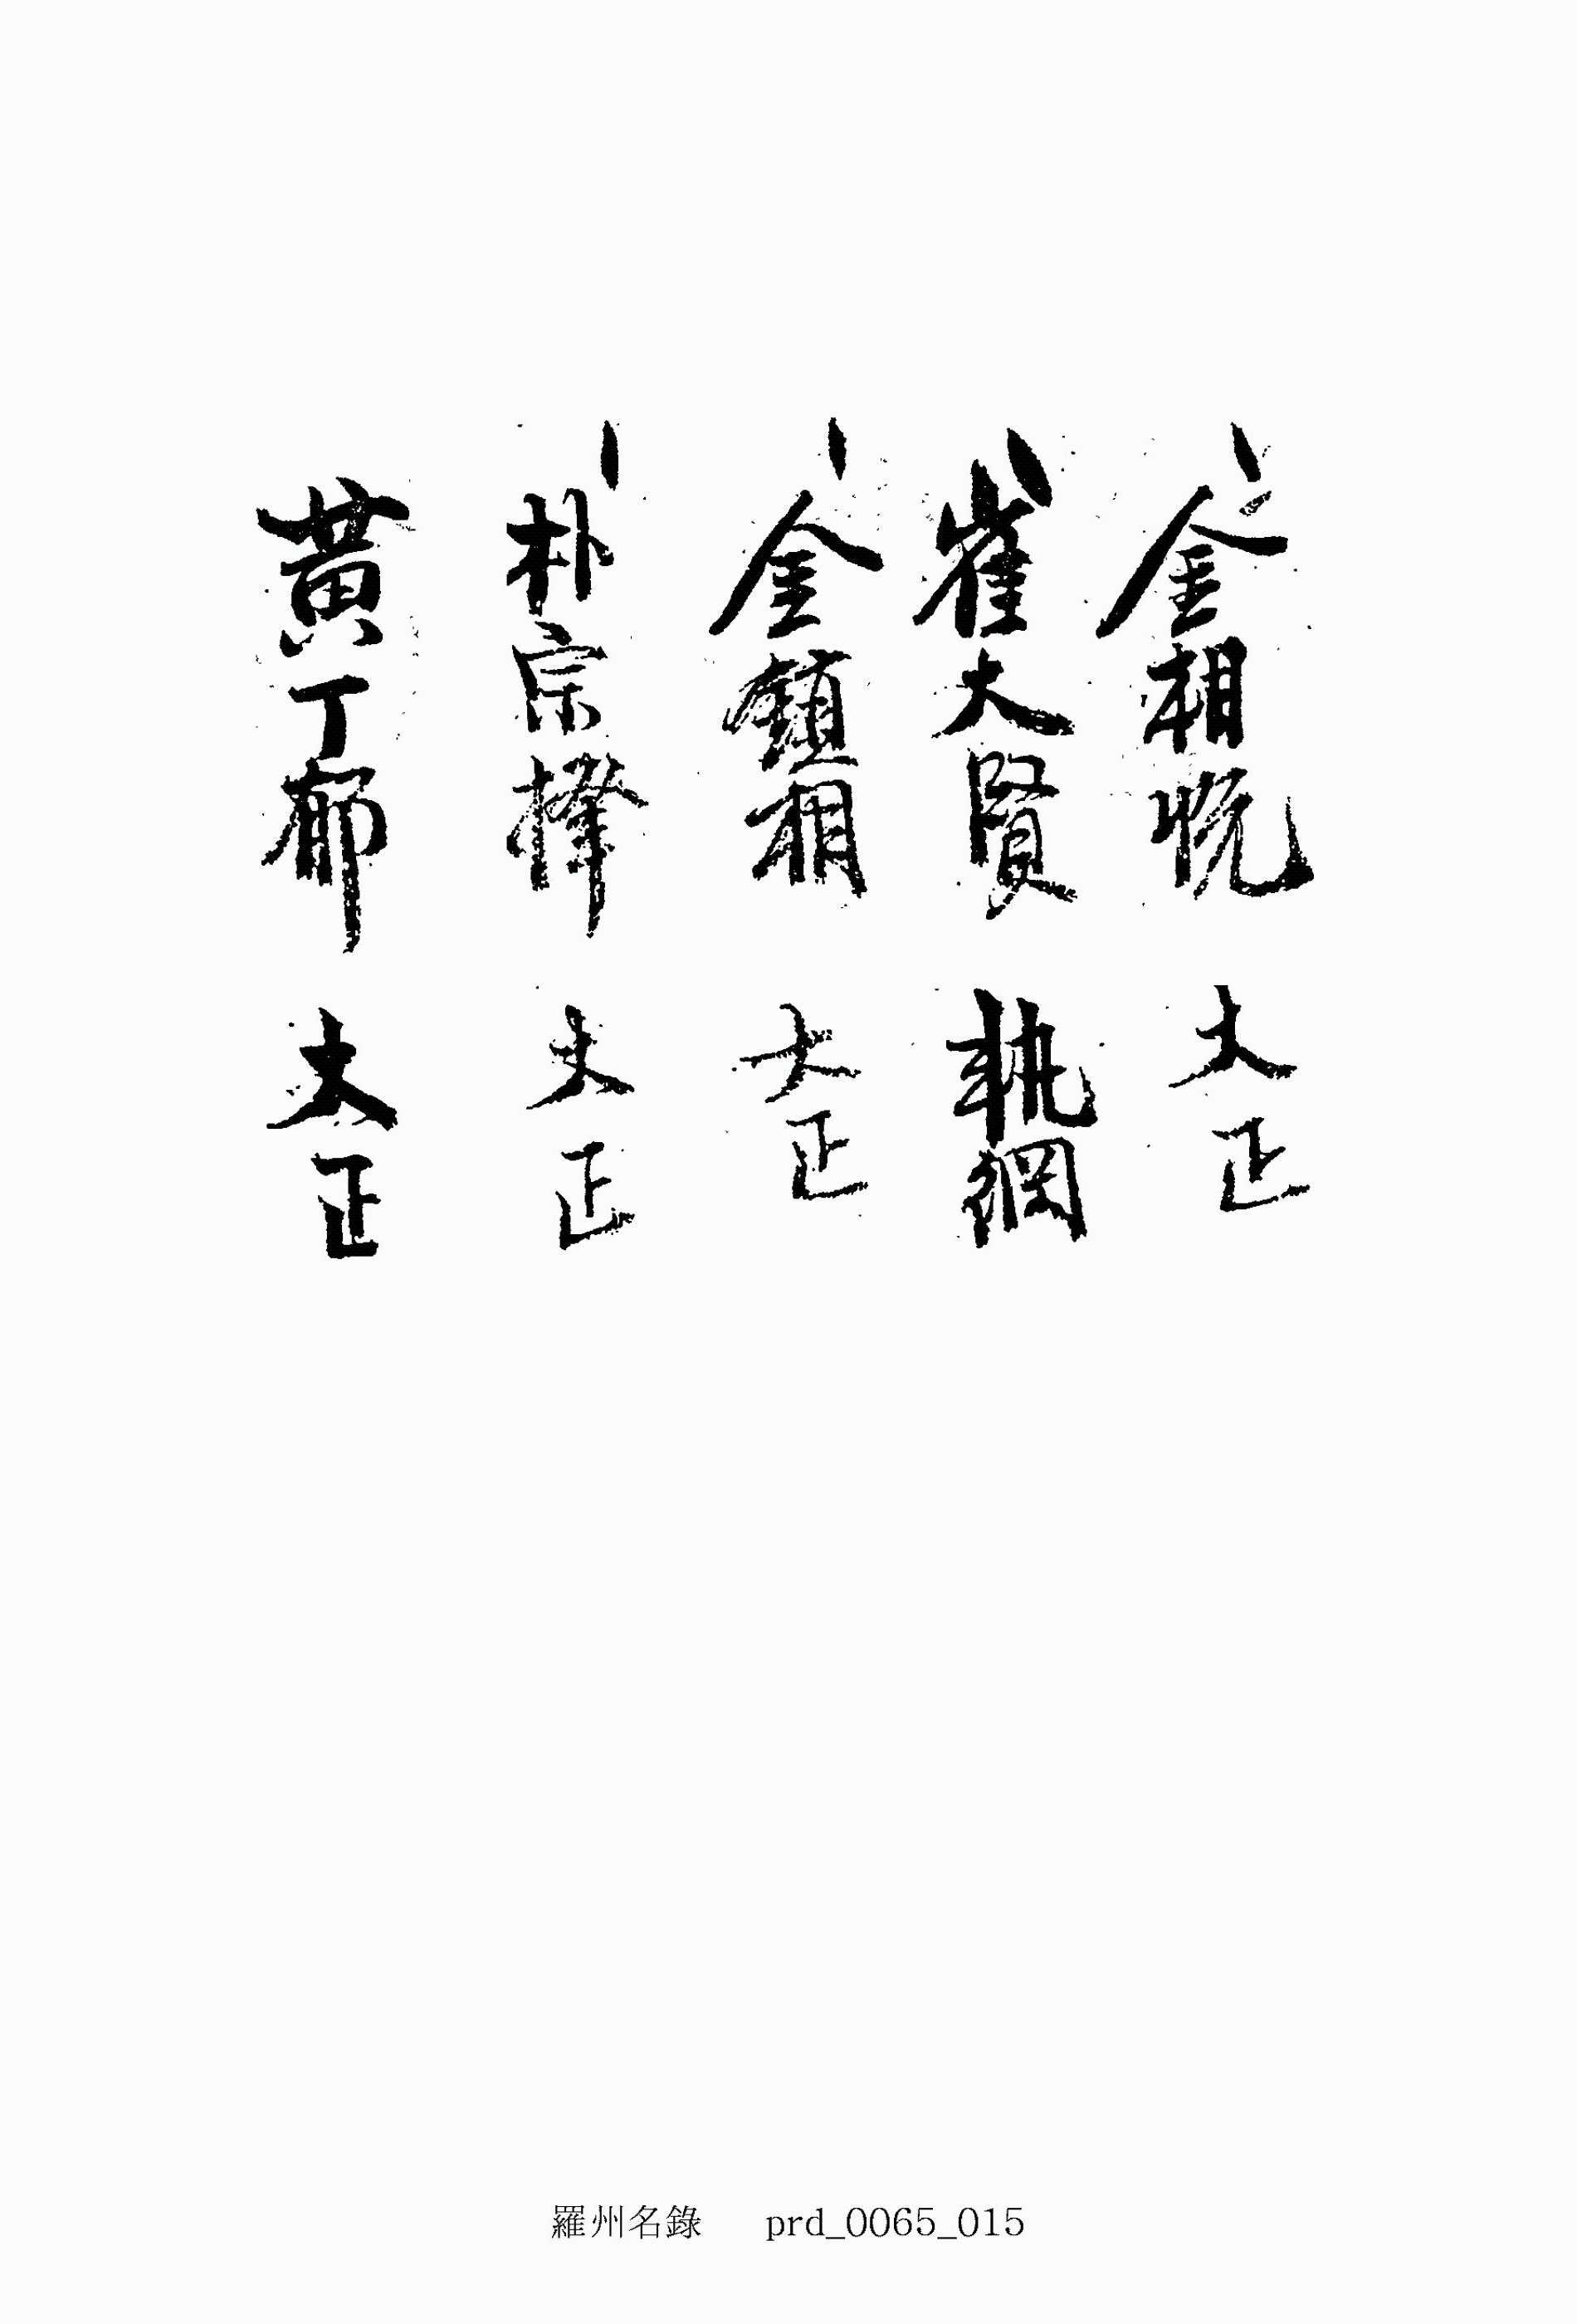 金相悅 大正
崔大賢 執綱
金鎭相 大正
朴宗擇 大正
黃丁郁 大正
羅州名錄 prd_0065_015